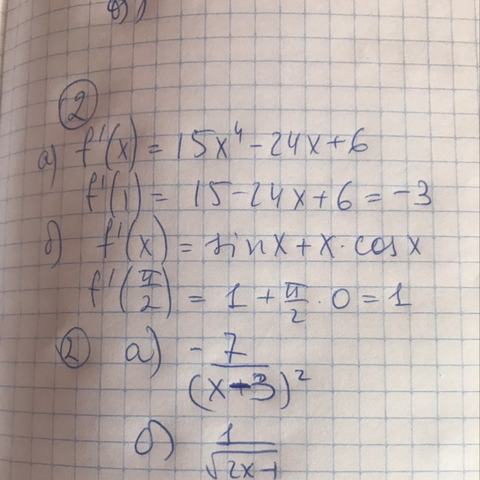 ②
а) f'(x) = 15x⁴ - 24x + 6
f'(1) = 15 - 24x + 6 = -3
б) f'(x) = sin x + x · cos x
f'(π/2) = 1 + π/2 · 0 = 1
② а) - 7/(x-3)²
б) 1/√2x-1